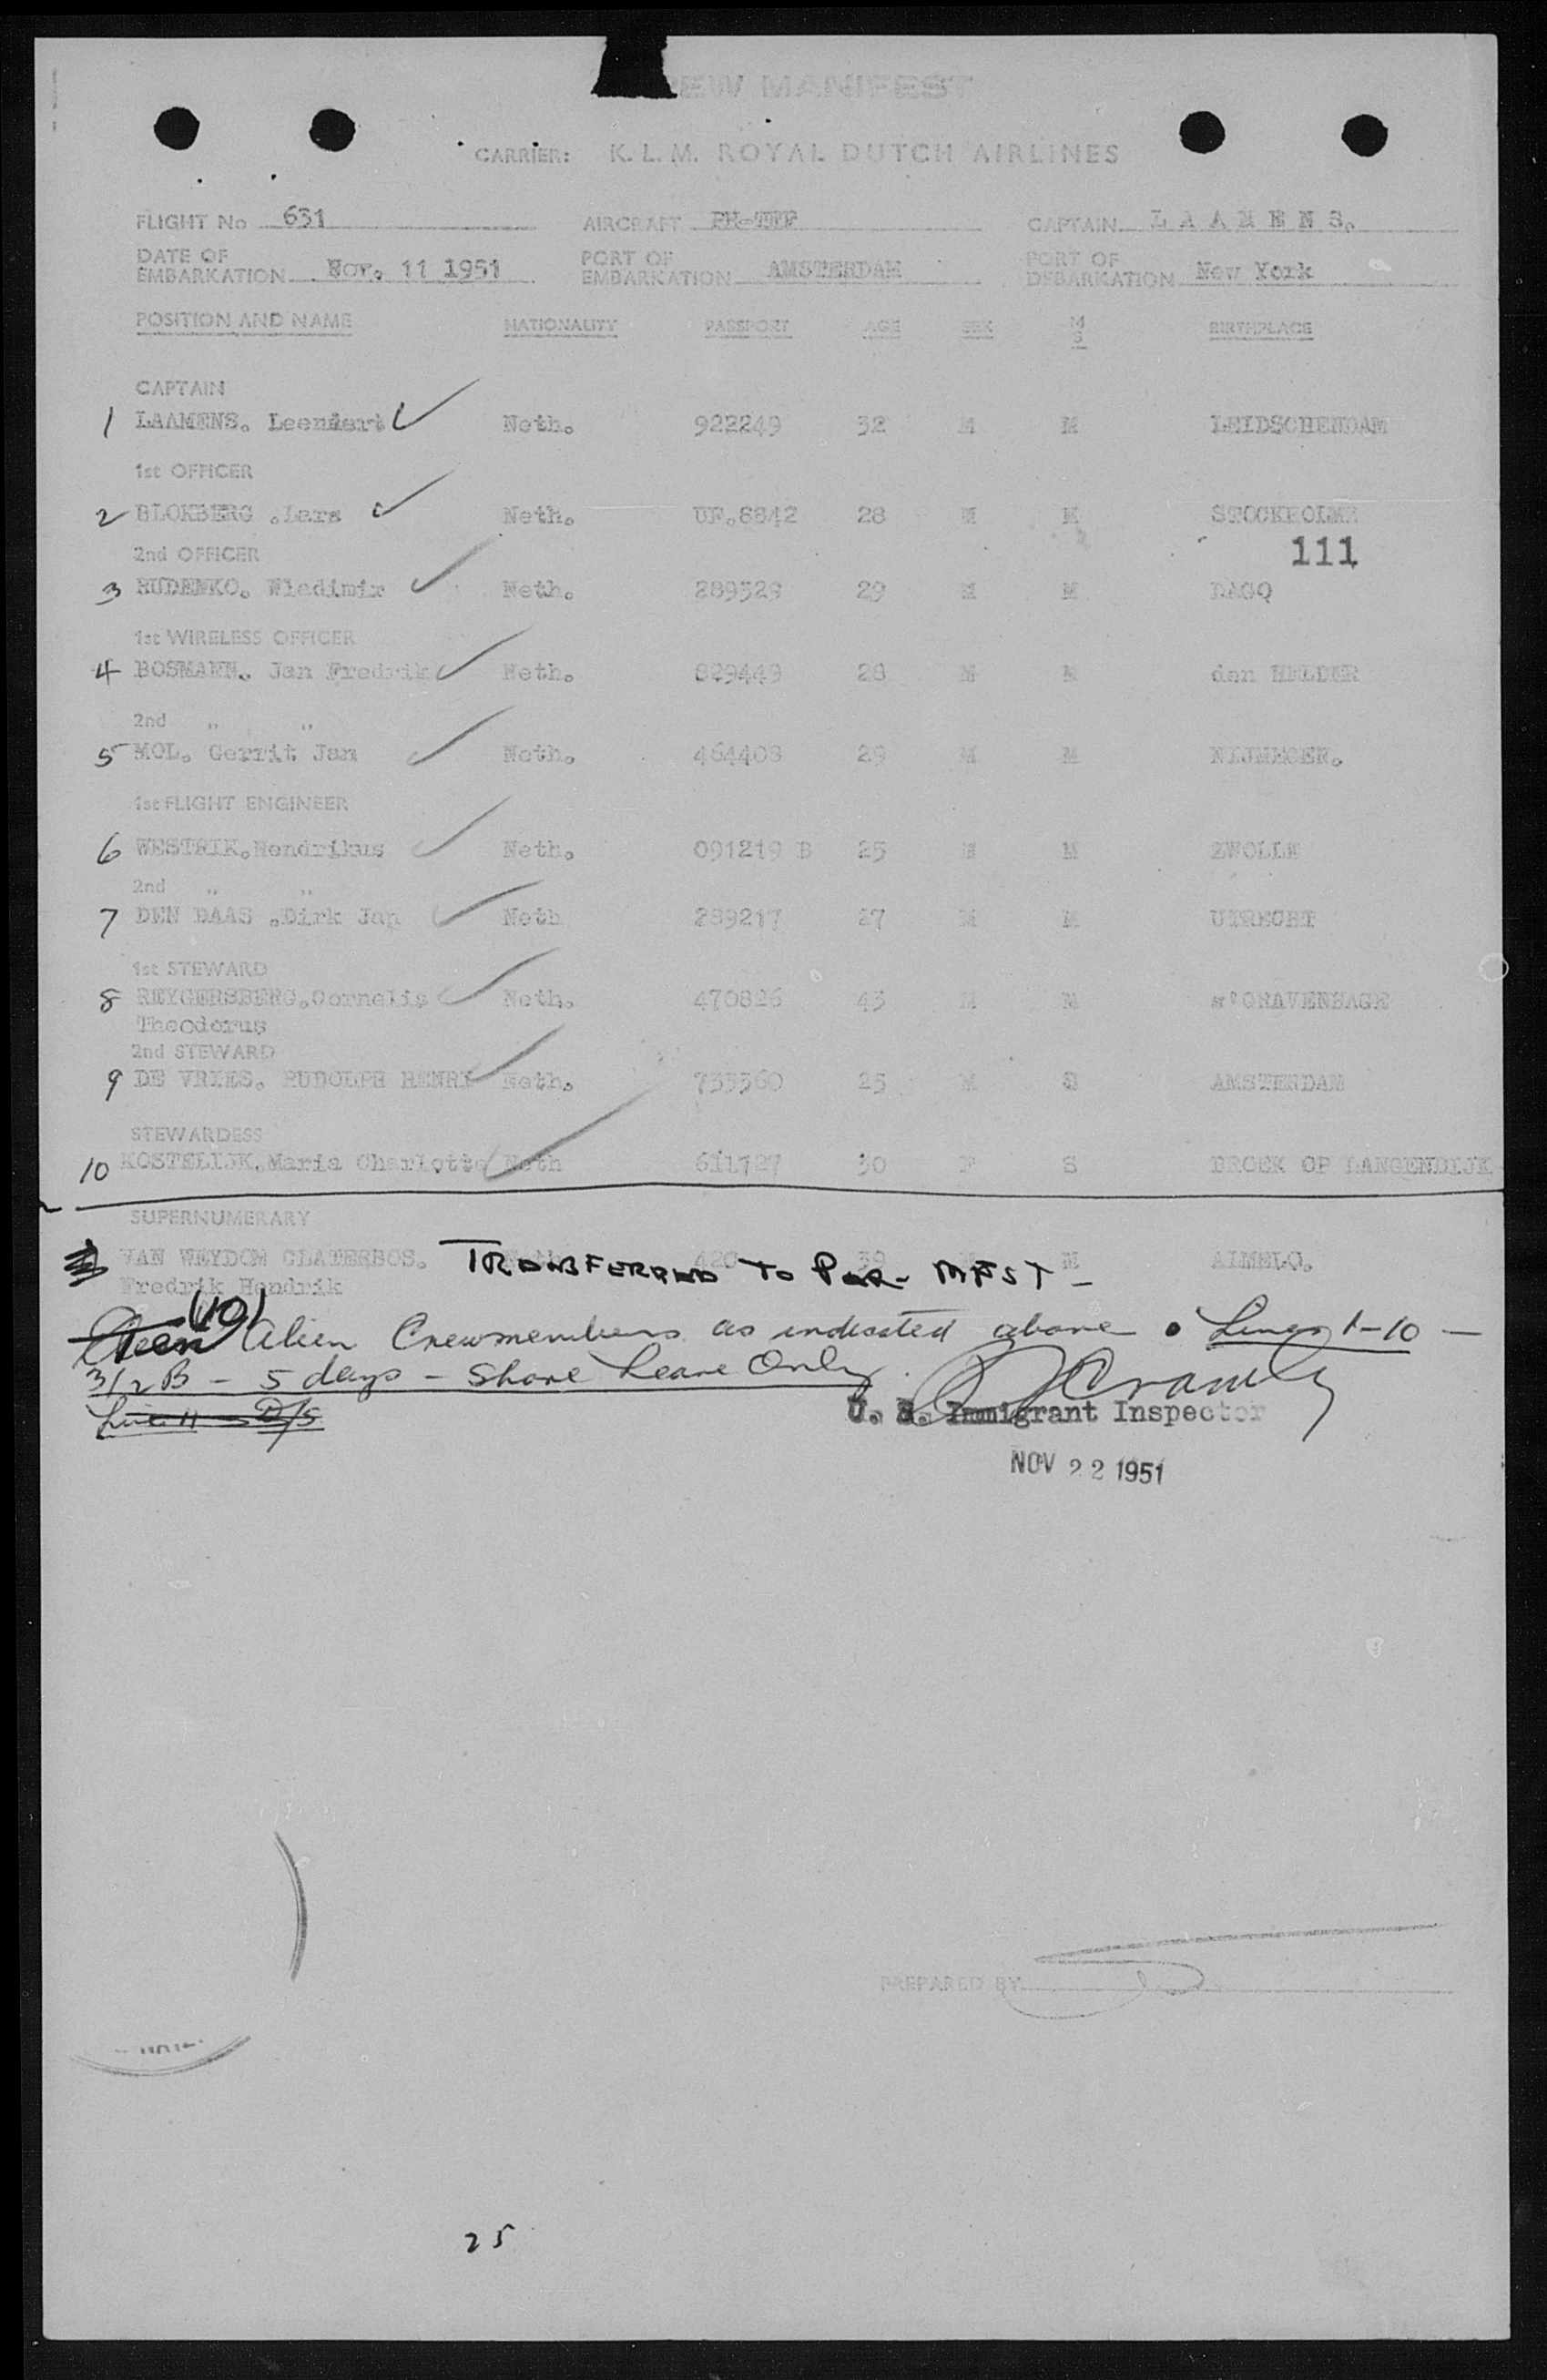 CREW MANIFEST
CARRIER: K. L. M. ROYAL DUTCH AIRLINES
FLIGHT No 631 AIRCRAFT PH-TFF CAPTAIN L A A M E N S.
DATE OF EMBARKATION Nov. 11 1951 PORT OF EMBARKATION AMSTERDAM PORT OF DEBARKATION New York
POSITION AND NAME NATIONALITY PASSPORT AGE SEX M S BIRTHPLACE
CAPTAIN
1 LAAMENS. Leendert Neth. 922249 32 M M LEIDSCHENDAM
1st OFFICER
2 BLOKBERG .Lars Neth. UF.8842 28 M M STOCKHOLME
111
2nd OFFICER
3 RUDENKO. Wladimir Neth. 289529 29 M M DAGO
1st WIRELESS OFFICER
4 BOSMANN. Jan Fredrik Neth. 829449 28 M M den HELDER
2nd " "
5 MOL. Gerrit Jan Neth. 464408 29 M M NIJMEGEN.
1st FLIGHT ENGINEER
6 WESTRIK.Hendrikus Neth. 091219 B 25 M M ZWOLLE
2nd " "
7 DEN DAAS .Dirk Jan Neth 289217 27 M M UTRECHT
1st STEWARD
8 REYGERSBERG.Cornelis Neth. 470826 43 M M s'GRAVENHAGE
Theodorus
2nd STEWARD
9 DE VRIES. RUDOLPH HENRI Neth. 733360 25 M S AMSTERDAM
STEWARDESS
10 KOSTELIJK.Maria Charlotte Neth 611727 30 F S BROEK OP LANGENDIJK
SUPERNUMERARY
VAN WEYDOM CLATERBOS. TRANSFERRED TO PAR- MFST - M ALMELO.
Fredrik Hendrik
(10) Alien Crewmembers as indicated above . Lines 1-10 -
3/2B - 5 days - Shore Leave Only
Line 11 - D/S
U. S. Immigrant Inspector
NOV 22 1951
PREPARED BY
25